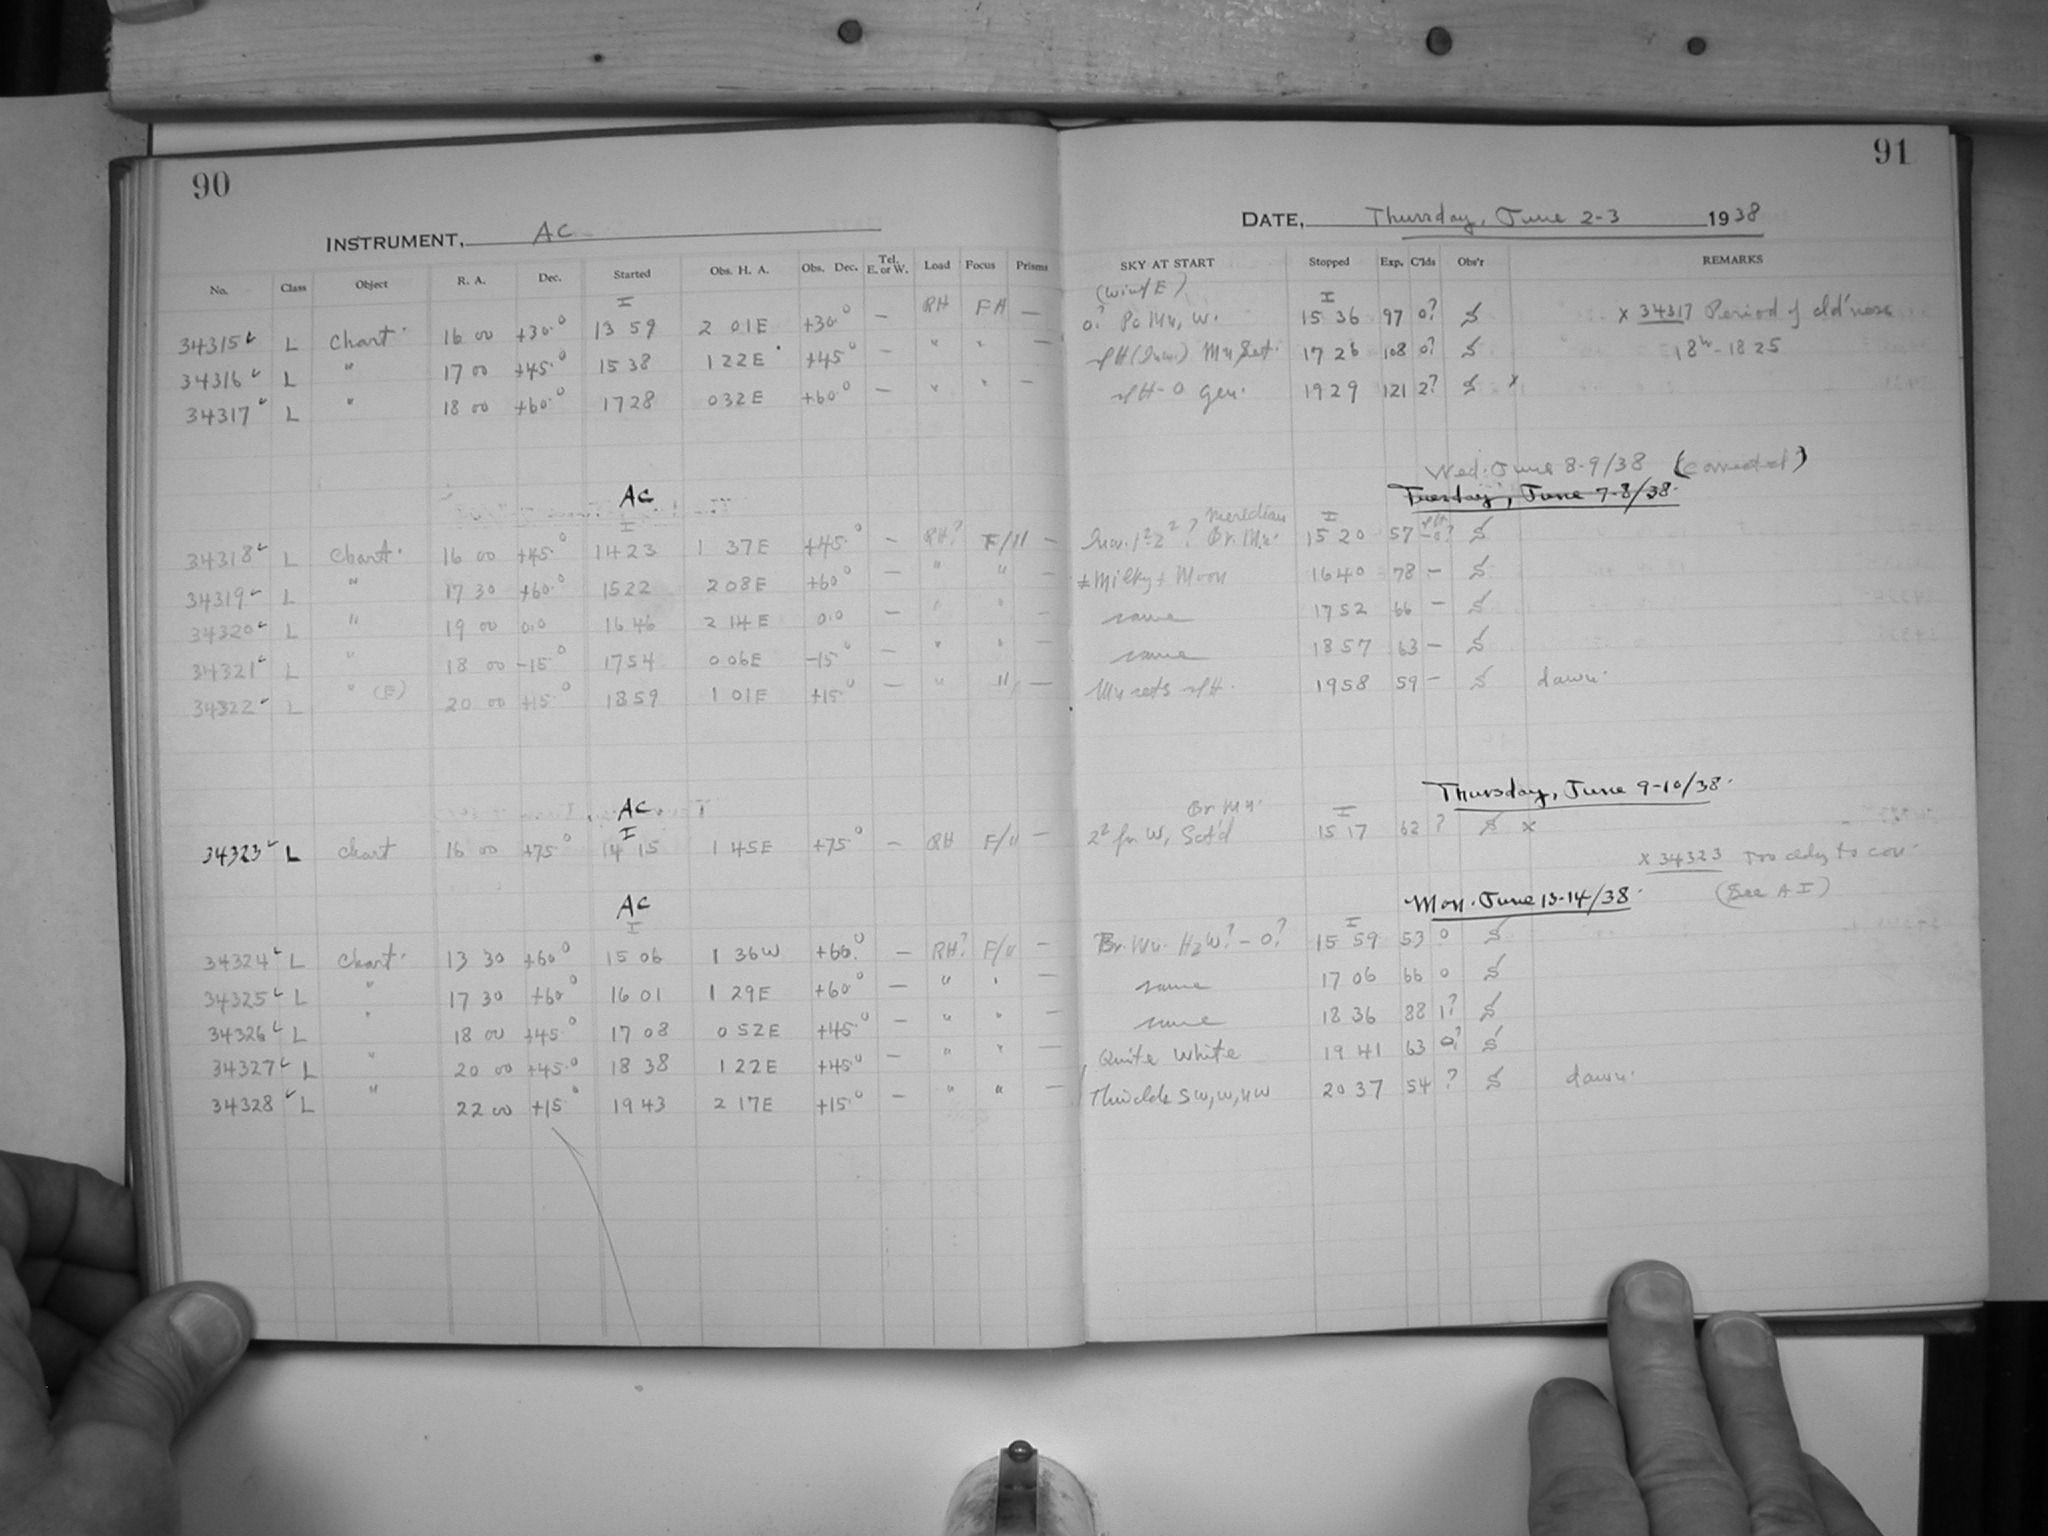 90
91
INSTRUMENT, AC
DATE, Thursday, June 2-3 1938
No. Class Object R. A. Dec. Started Obs. H. A. Obs. Dec. Tel. E. or W. Load Focus Prisms SKY AT START Stopped Exp. C'lds Obs'r REMARKS
34315 L Chart 16 00 +30.0 I 13 59 2 01E +30.0 — RH FH — I 15 36 97 0? S x 34317 Period of cld'ness
34316 L " 17 00 +45.0 15 38 1 22E +45.0 — " " — 17 26 108 0? S 18h - 18 25
34317 L " 18 00 +60.0 17 28 0 32E +60.0 — " " — 19 29 121 2? S x
Wed. June 8-9/38 (corrected)
AC Tuesday, June 7-8/38.
34318 L Chart. 16 00 +45.0 I 14 23 1 37E +45.0 — RH? F/11 — meridian Br. Mn. I 15 20 57 S
34319 L " 17 30 +60.0 15 22 2 08E +60.0 — " " — ± Milky + Moon 16 40 78 — S
34320 L " 19 00 0.0 16 46 2 14E 0.0 — " " — same 17 52 66 — S
34321 L " 18 00 -15.0 17 54 0 06E -15.0 — " " — same 18 57 63 — S
34322 L " (E) 20 00 +15.0 18 59 1 01E +15.0 — " " — Mn sets 19 58 59 — S dawn.
AC Thursday, June 9-10/38.
34323 L Chart 16 00 +75.0 I 14 15 1 45E +75.0 — RH F/11 — Br. Mn. W, Sct'd I 15 17 62 ? S x
x 34323 Too cldy to con.
(See A I)
AC Mon. June 13-14/38.
34324 L Chart. 13 30 +60.0 I 15 06 1 36W +60.0 — RH? F/11 — Br. Mn. I 15 59 53 0 S
34325 L " 17 30 +60.0 16 01 1 29E +60.0 — " " — same 17 06 66 0 S
34326 L " 18 00 +45.0 17 08 0 52E +45.0 — " " — same 18 36 88 1? S
34327 L " 20 00 +45.0 18 38 1 22E +45.0 — " " — Quite white 19 41 63 0? S
34328 L " 22 00 +15.0 19 43 2 17E +15.0 — " " — SW, W, NW 20 37 54 ? S dawn.